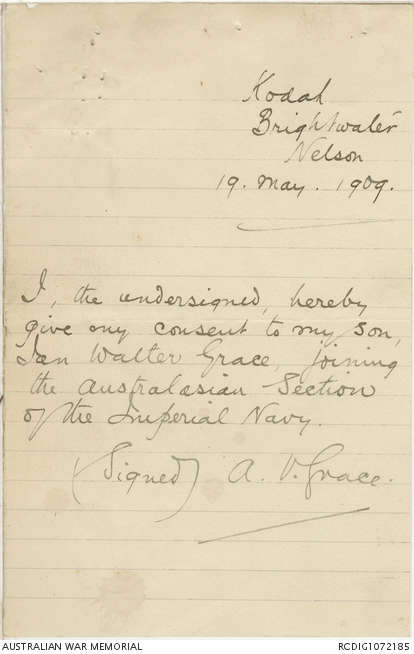 Kodah
Brightwater
Nelson
19. May. 1909.
I, the undersigned, hereby
give my consent to my son,
Ian Walter Grace, joining
the Australasian Section
of the Imperial Navy.
(Signed) A. V. Grace.
AUSTRALIAN WAR MEMORIAL
RCDIG1072185